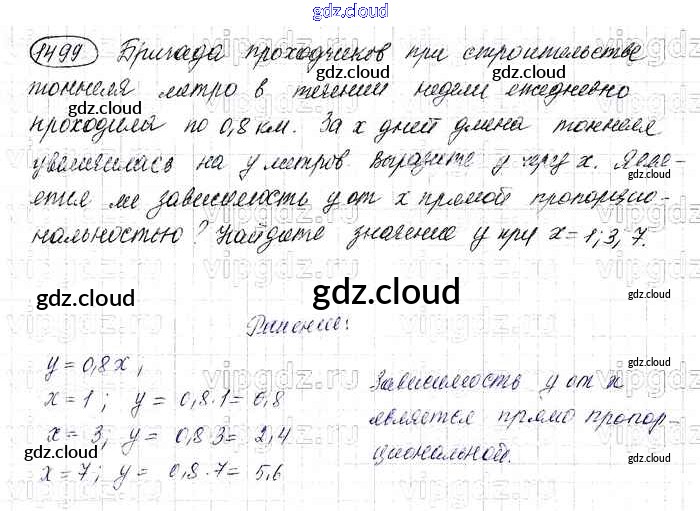 gdz.cloud
1499 Бригада проходчиков при строительстве
тоннеля метро в течении недели ежедневно
gdz.cloud gdz.cloud
проходила по 0,8 км. За x дней длина тоннеля
увеличилась на y метров выразите y через x. Явля-
ется ли зависимость y от x прямой пропорцио-
gdz.cloud gdz.cloud
нальностью? Найдите значение y при x=1; 3; 7.
gdz.cloud gdz.cloud gdz.cloud
Решение:
y = 0,8x;
x=1; y = 0,8·1= 0,8
x= 3; y = 0,8·3= 2,4
x=7; y = 0,8·7= 5,6
Зависимость y от x
является прямо пропор-
циональной.
gdz.cloud gdz.cloud
gdz.cloud gdz.cloud
vipgdz.ru